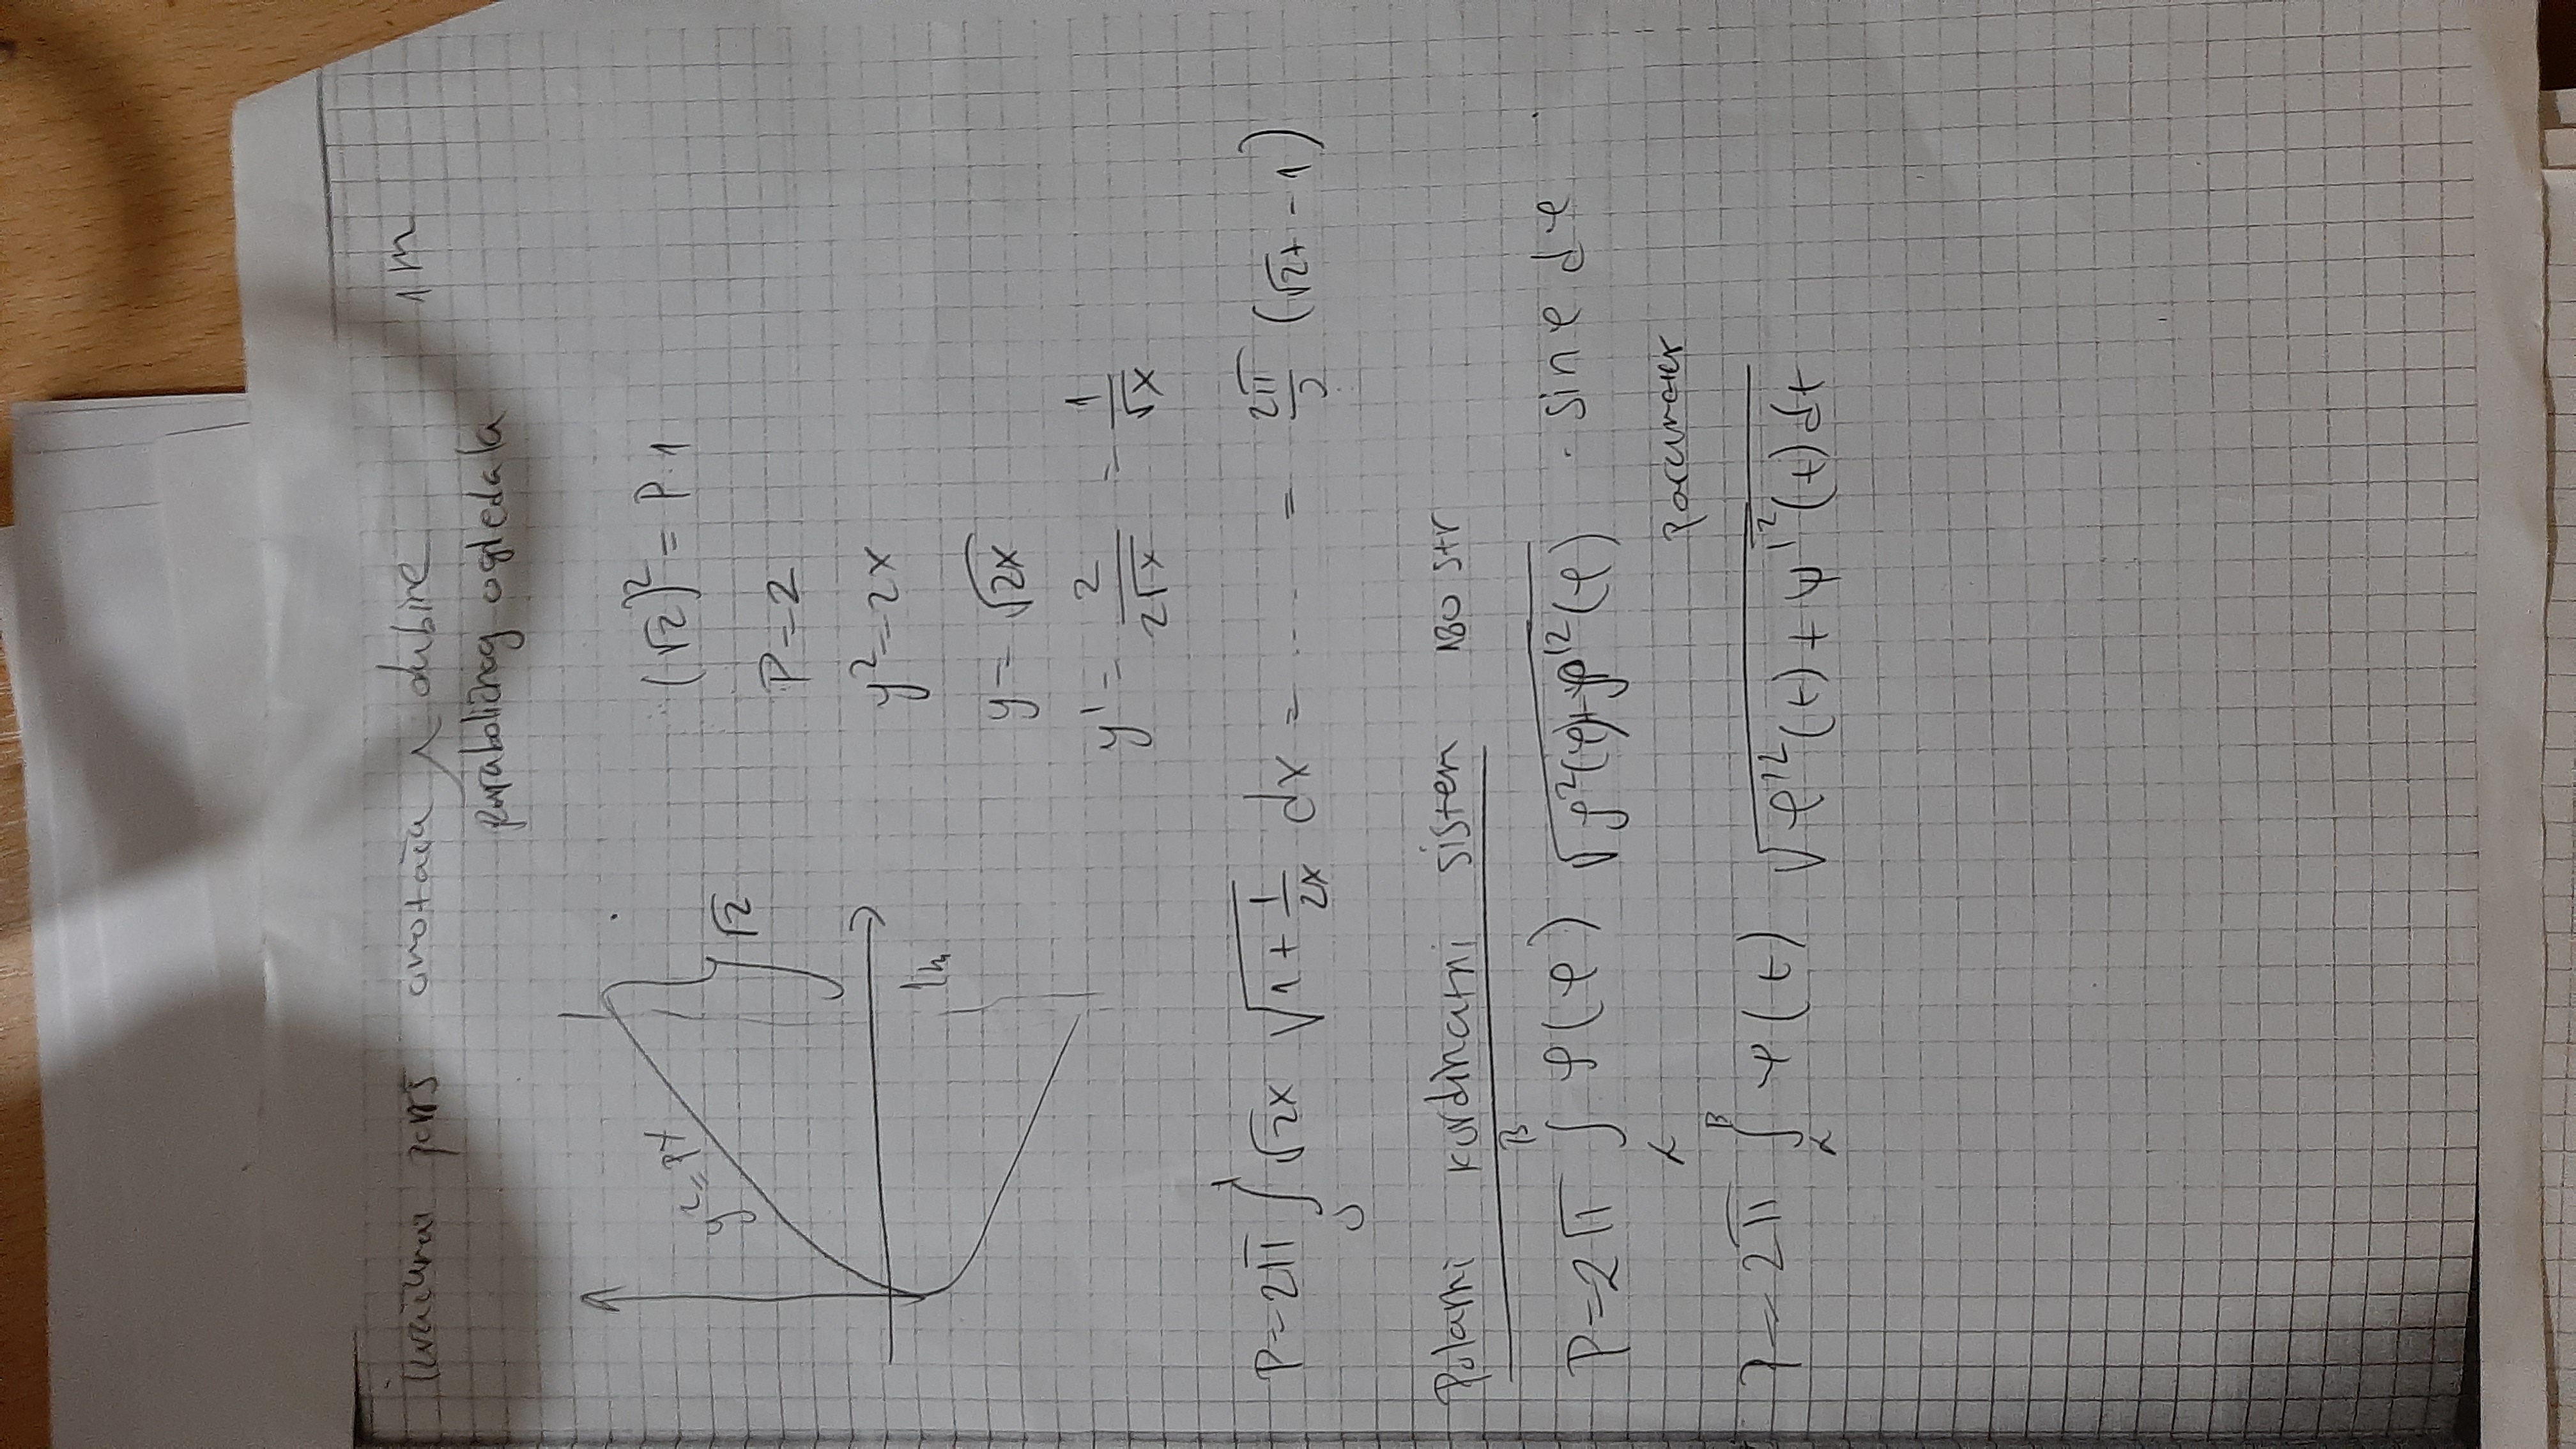 dubine 1 m
paraboličnog ogledala
y² = px
√2
1m
(√2)² = P·1
P = 2
y² = 2x
y = √2x
y' = 2/2√x = 1/√x
P = 2π ∫₀¹ √2x √1 + 1/2x dx = .... = 2π/ (√2+ - 1)
Polarni kordinatni sistem 180 str
P = 2π ∫ₐᵝ ρ(φ) √ρ²(φ)+ρ'²(φ) · sin φ dφ
parametar
P = 2π ∫ₐᵝ ψ(t) √φ'²(t) + ψ'²(t) dt